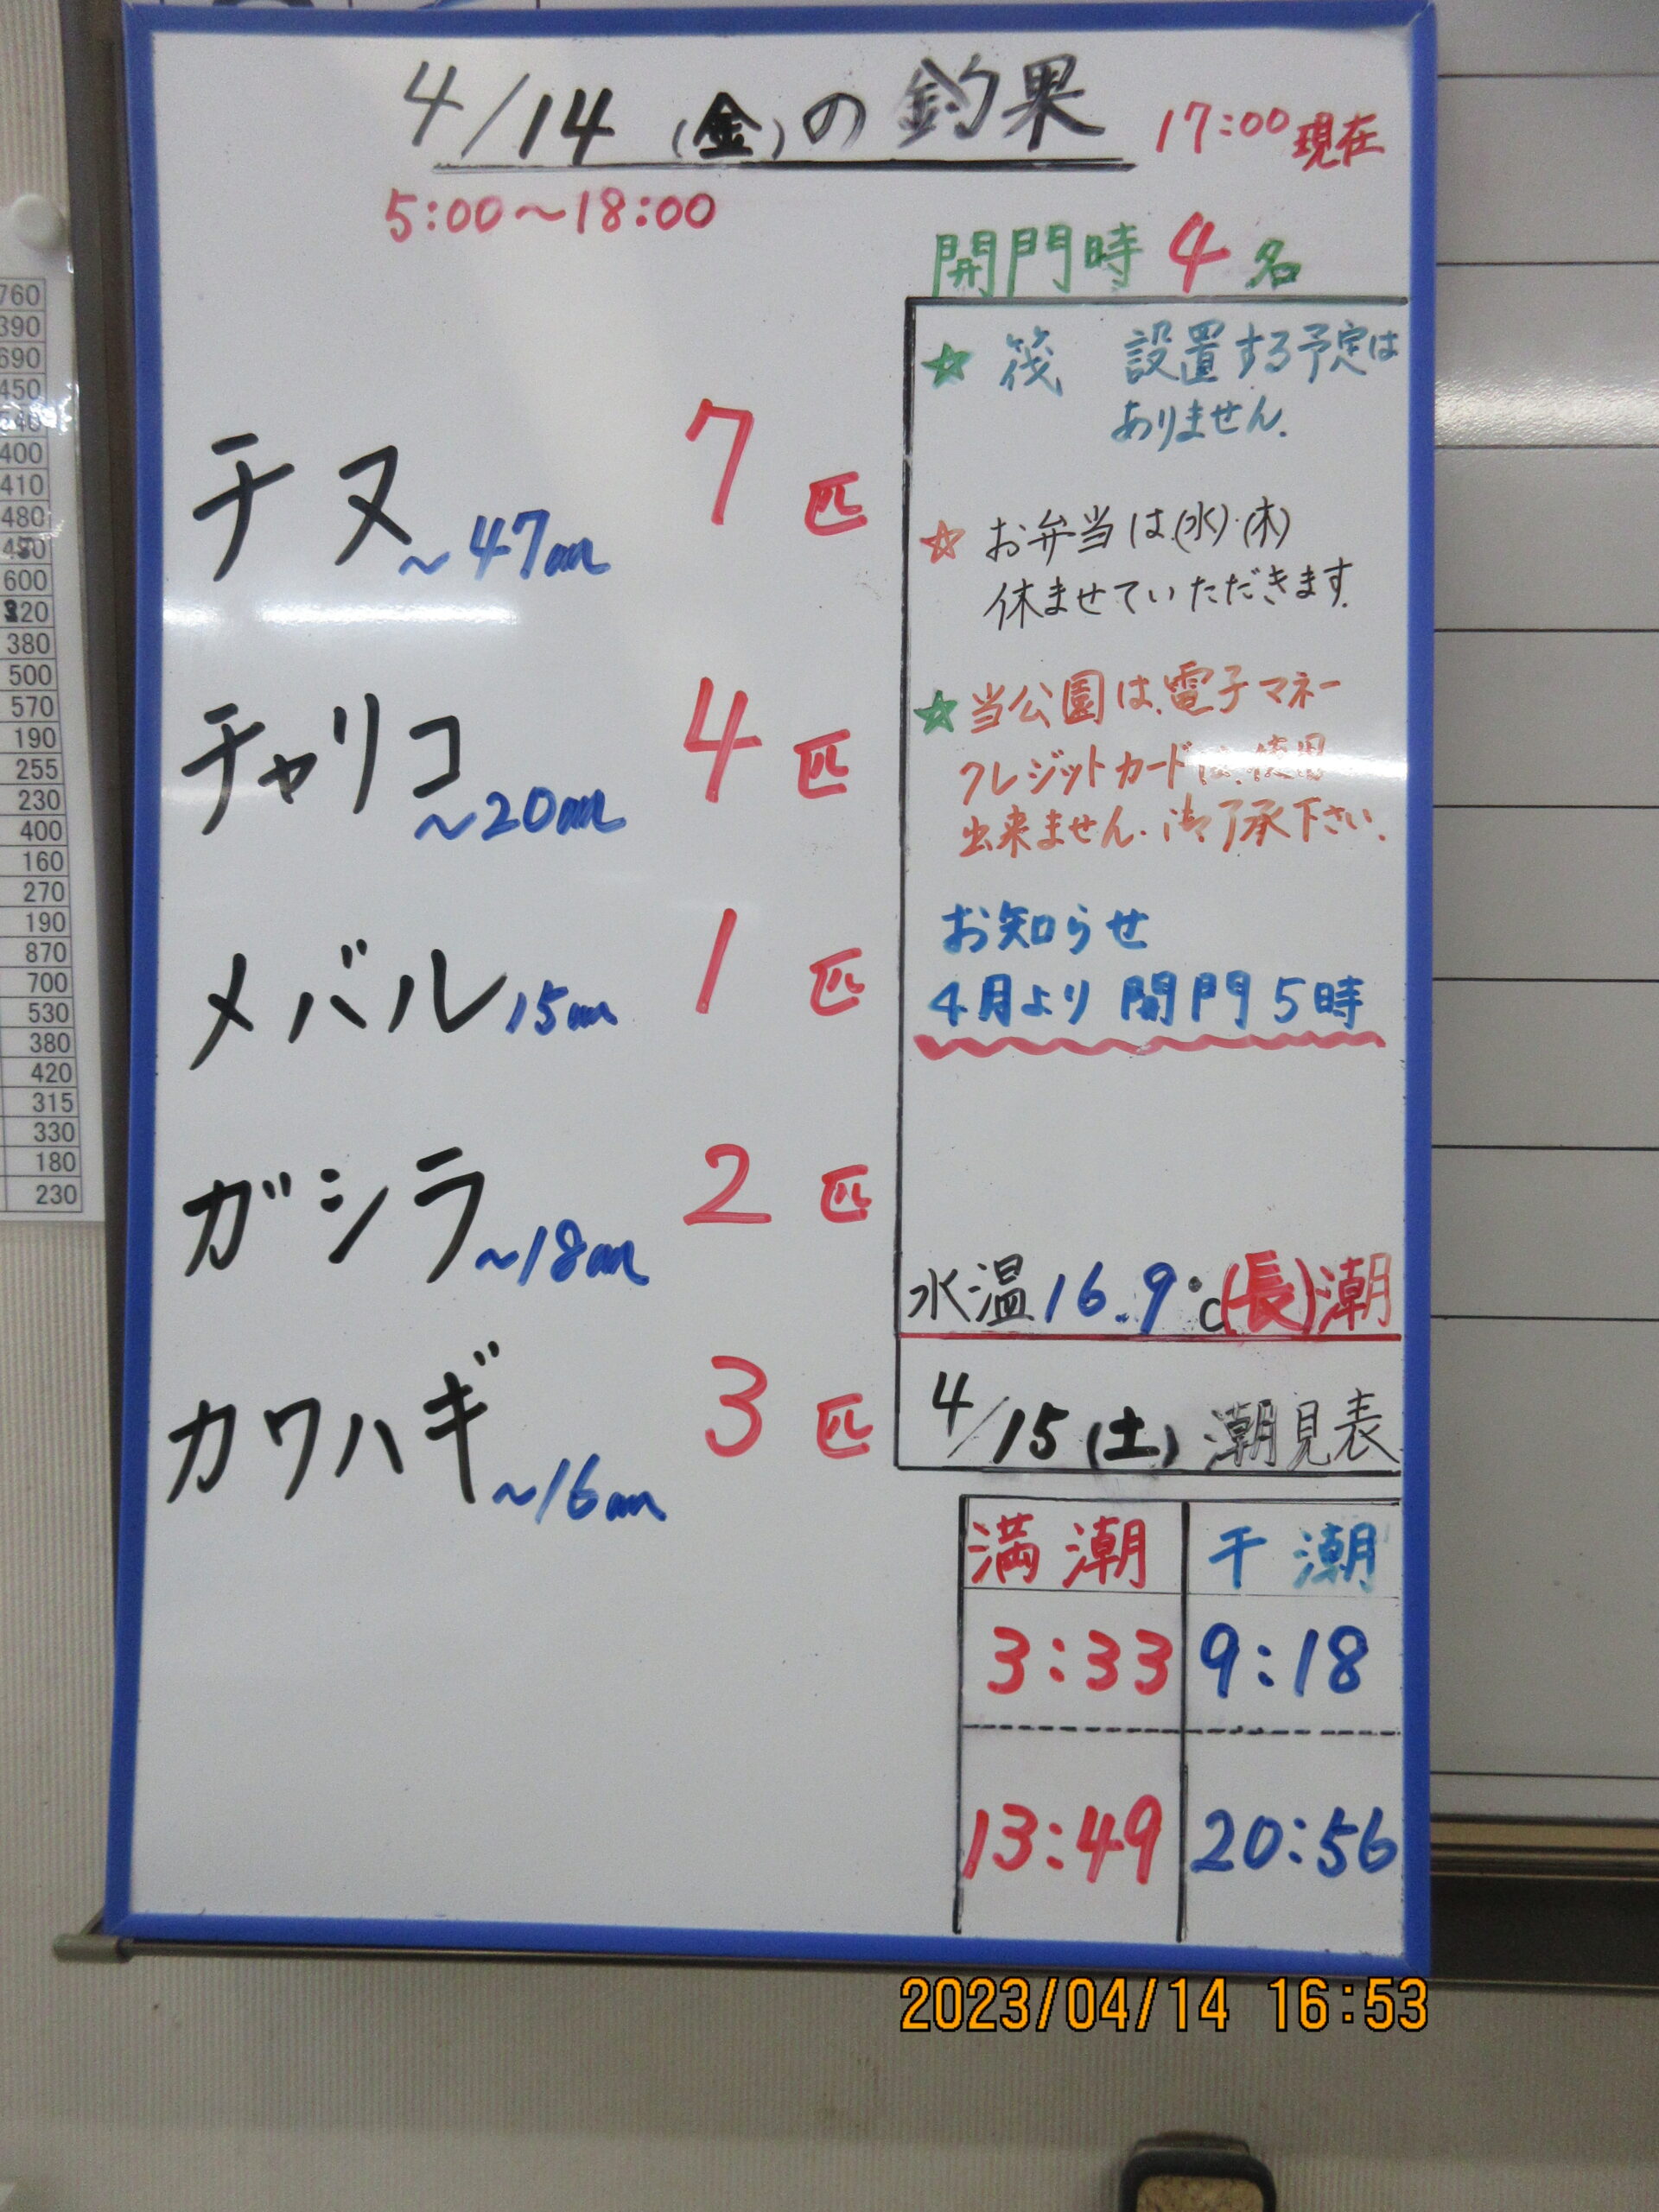 4/14(金)の釣果 17:00現在
5:00～18:00
開門時 4名
チヌ ～47cm 7匹
チャリコ ～20cm 4匹
メバル 15cm 1匹
ガシラ ～18cm 2匹
カワハギ ～16cm 3匹
☆ 筏 設置する予定は
ありません.
☆ お弁当は(水)・(木)
休ませていただきます.
☆ 当公園は、電子マネー
クレジットカードは、使用
出来ません. 御了承下さい.
お知らせ
4月より 開門 5時
水温16.9℃(長)潮
4/15(土) 潮見表
満潮 干潮
3:33 9:18
13:49 20:56
2023/04/14 16:53
760
390
690
450
540
400
410
480
600
320
380
500
570
190
255
230
400
160
270
190
870
700
530
380
420
315
330
180
230